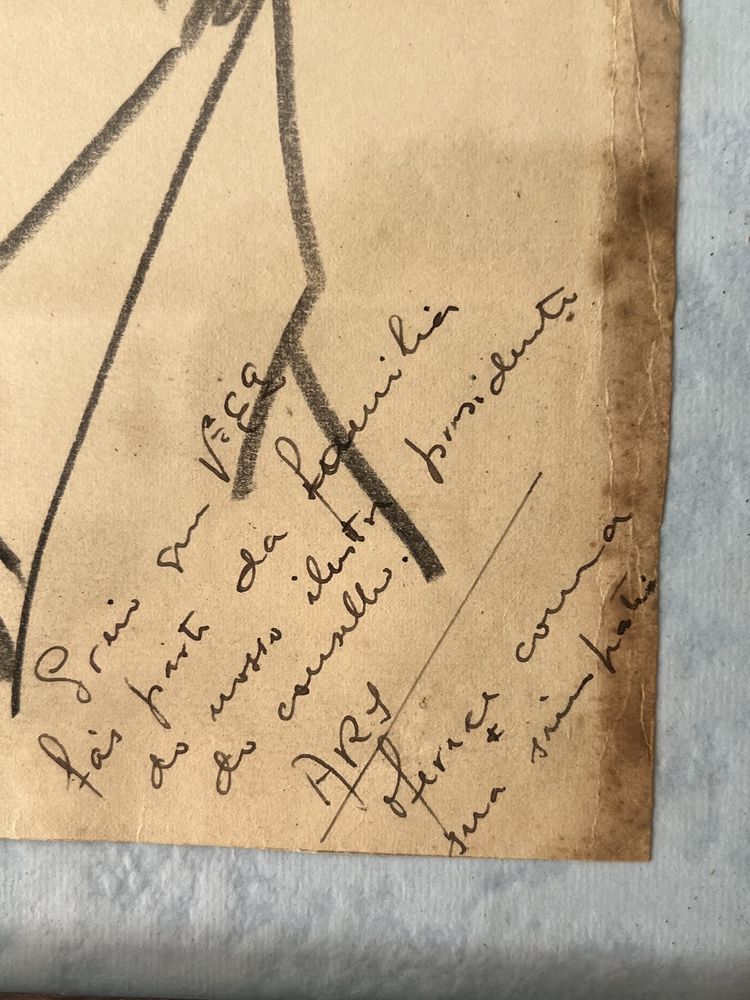 em V.ª Exª
fás parte da familia
do nosso ilustre presidente
do conselho.
ARY
oferece com a
sua simpatia